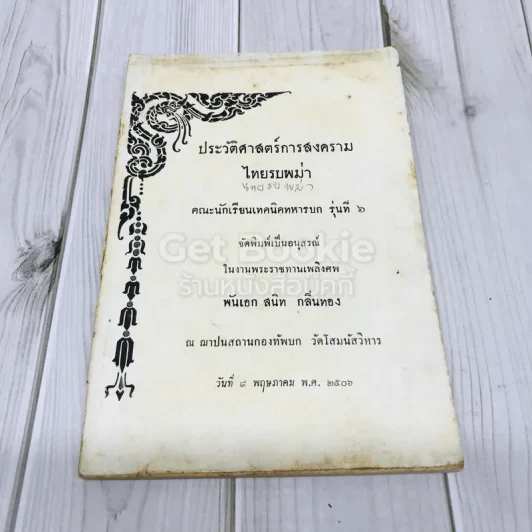 ประวัติศาสตร์การสงคราม
ไทยรบพม่า
ไทยรบพม่า
คณะนักเรียนเทคนิคทหารบก รุ่นที่ ๖
จัดพิมพ์เป็นอนุสรณ์
Get Bookie
ในงานพระราชทานเพลิงศพ
ร้านหนังสือเก็ทบุ๊คกี้
พันเอก สนิท กลิ่นทอง
ณ ฌาปนสถานกองทัพบก วัดโสมนัสวิหาร
วันที่ ๘ พฤษภาคม พ.ศ. ๒๕๐๖